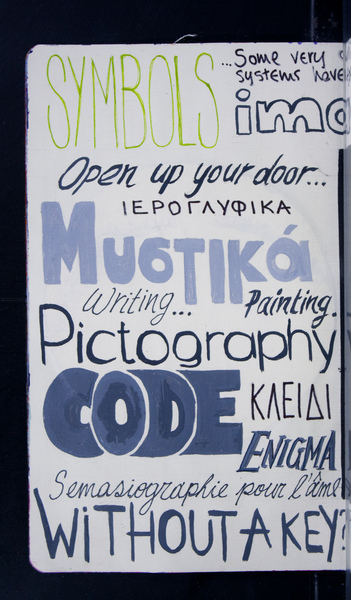 SYMBOLS
...Some very
systems have
Open up your door...
ΙΕΡΟΓΛΥΦΙΚΑ
Μυστικά
Writing... Painting.
Pictography
CODE
ΚΛΕΙΔΙ
ENIGMA
Semasiographie pour l'âme
WiTHOUT A KEY?